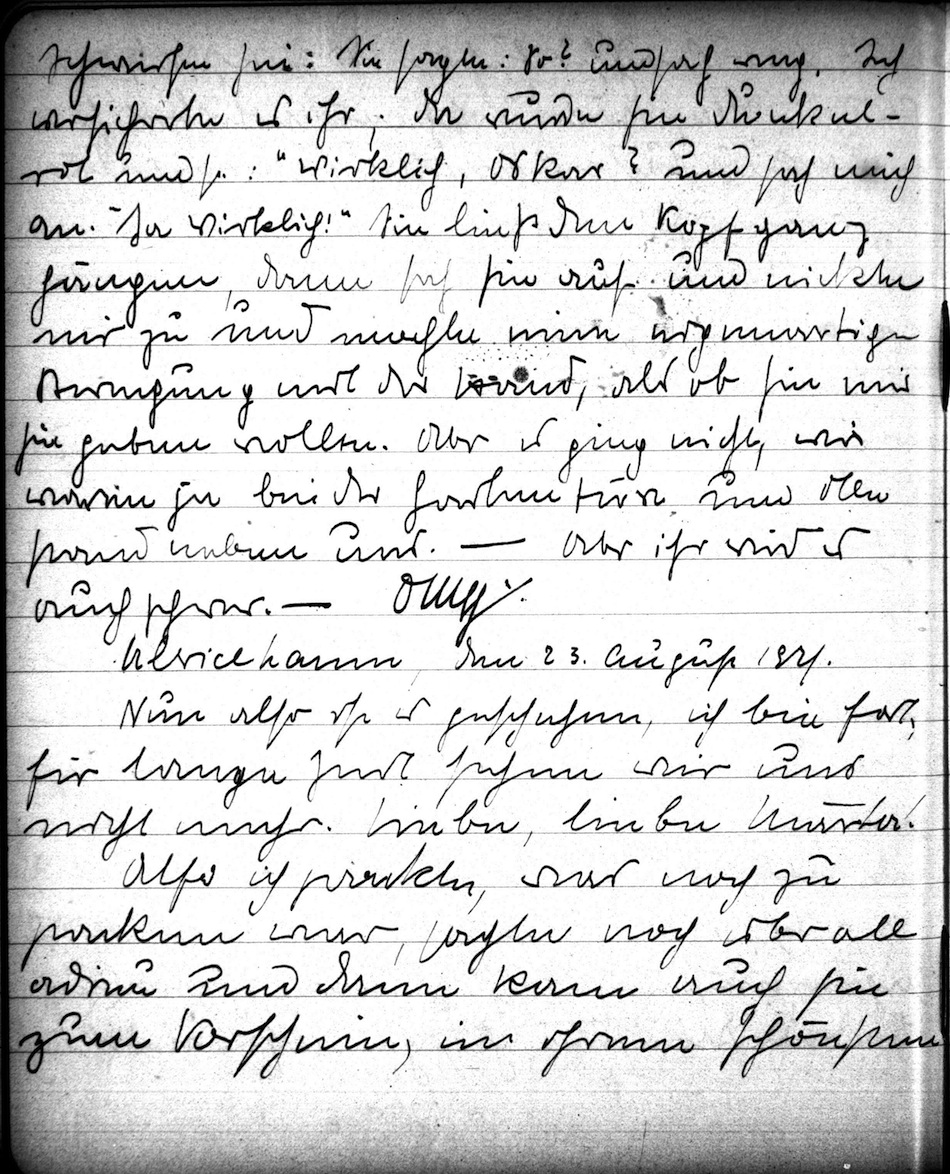 Schweißen sei: Sie sagte: So? und sah weg. Ich
versicherte es ihr, da wurde sie dunkel-
rot und s.: "Wirklich, Oskar? und sah mich
an. "Ja wirklich!" Sie ließ den Kopf ganz
hängen, dann sah sie auf und nickte
mir zu und machte eine eigenartige
Bewegung mit der Hand, als ob sie mir
sie geben wollte. Aber es ging nicht, wir
waren ja bei der Gartentüre und Olla
stand neben uns. — Aber ihr wird es
auch schwer. —
den 23. August
Nun also ist es geschehen, ich bin fort,
für lange Zeit sehen wir uns
nicht mehr. Liebe, liebe Martha!
Also ich packte, was noch zu
packen war, sagte noch überall
adieu und dann kam auch sie
zum Vorschein, in ihrem schönsten